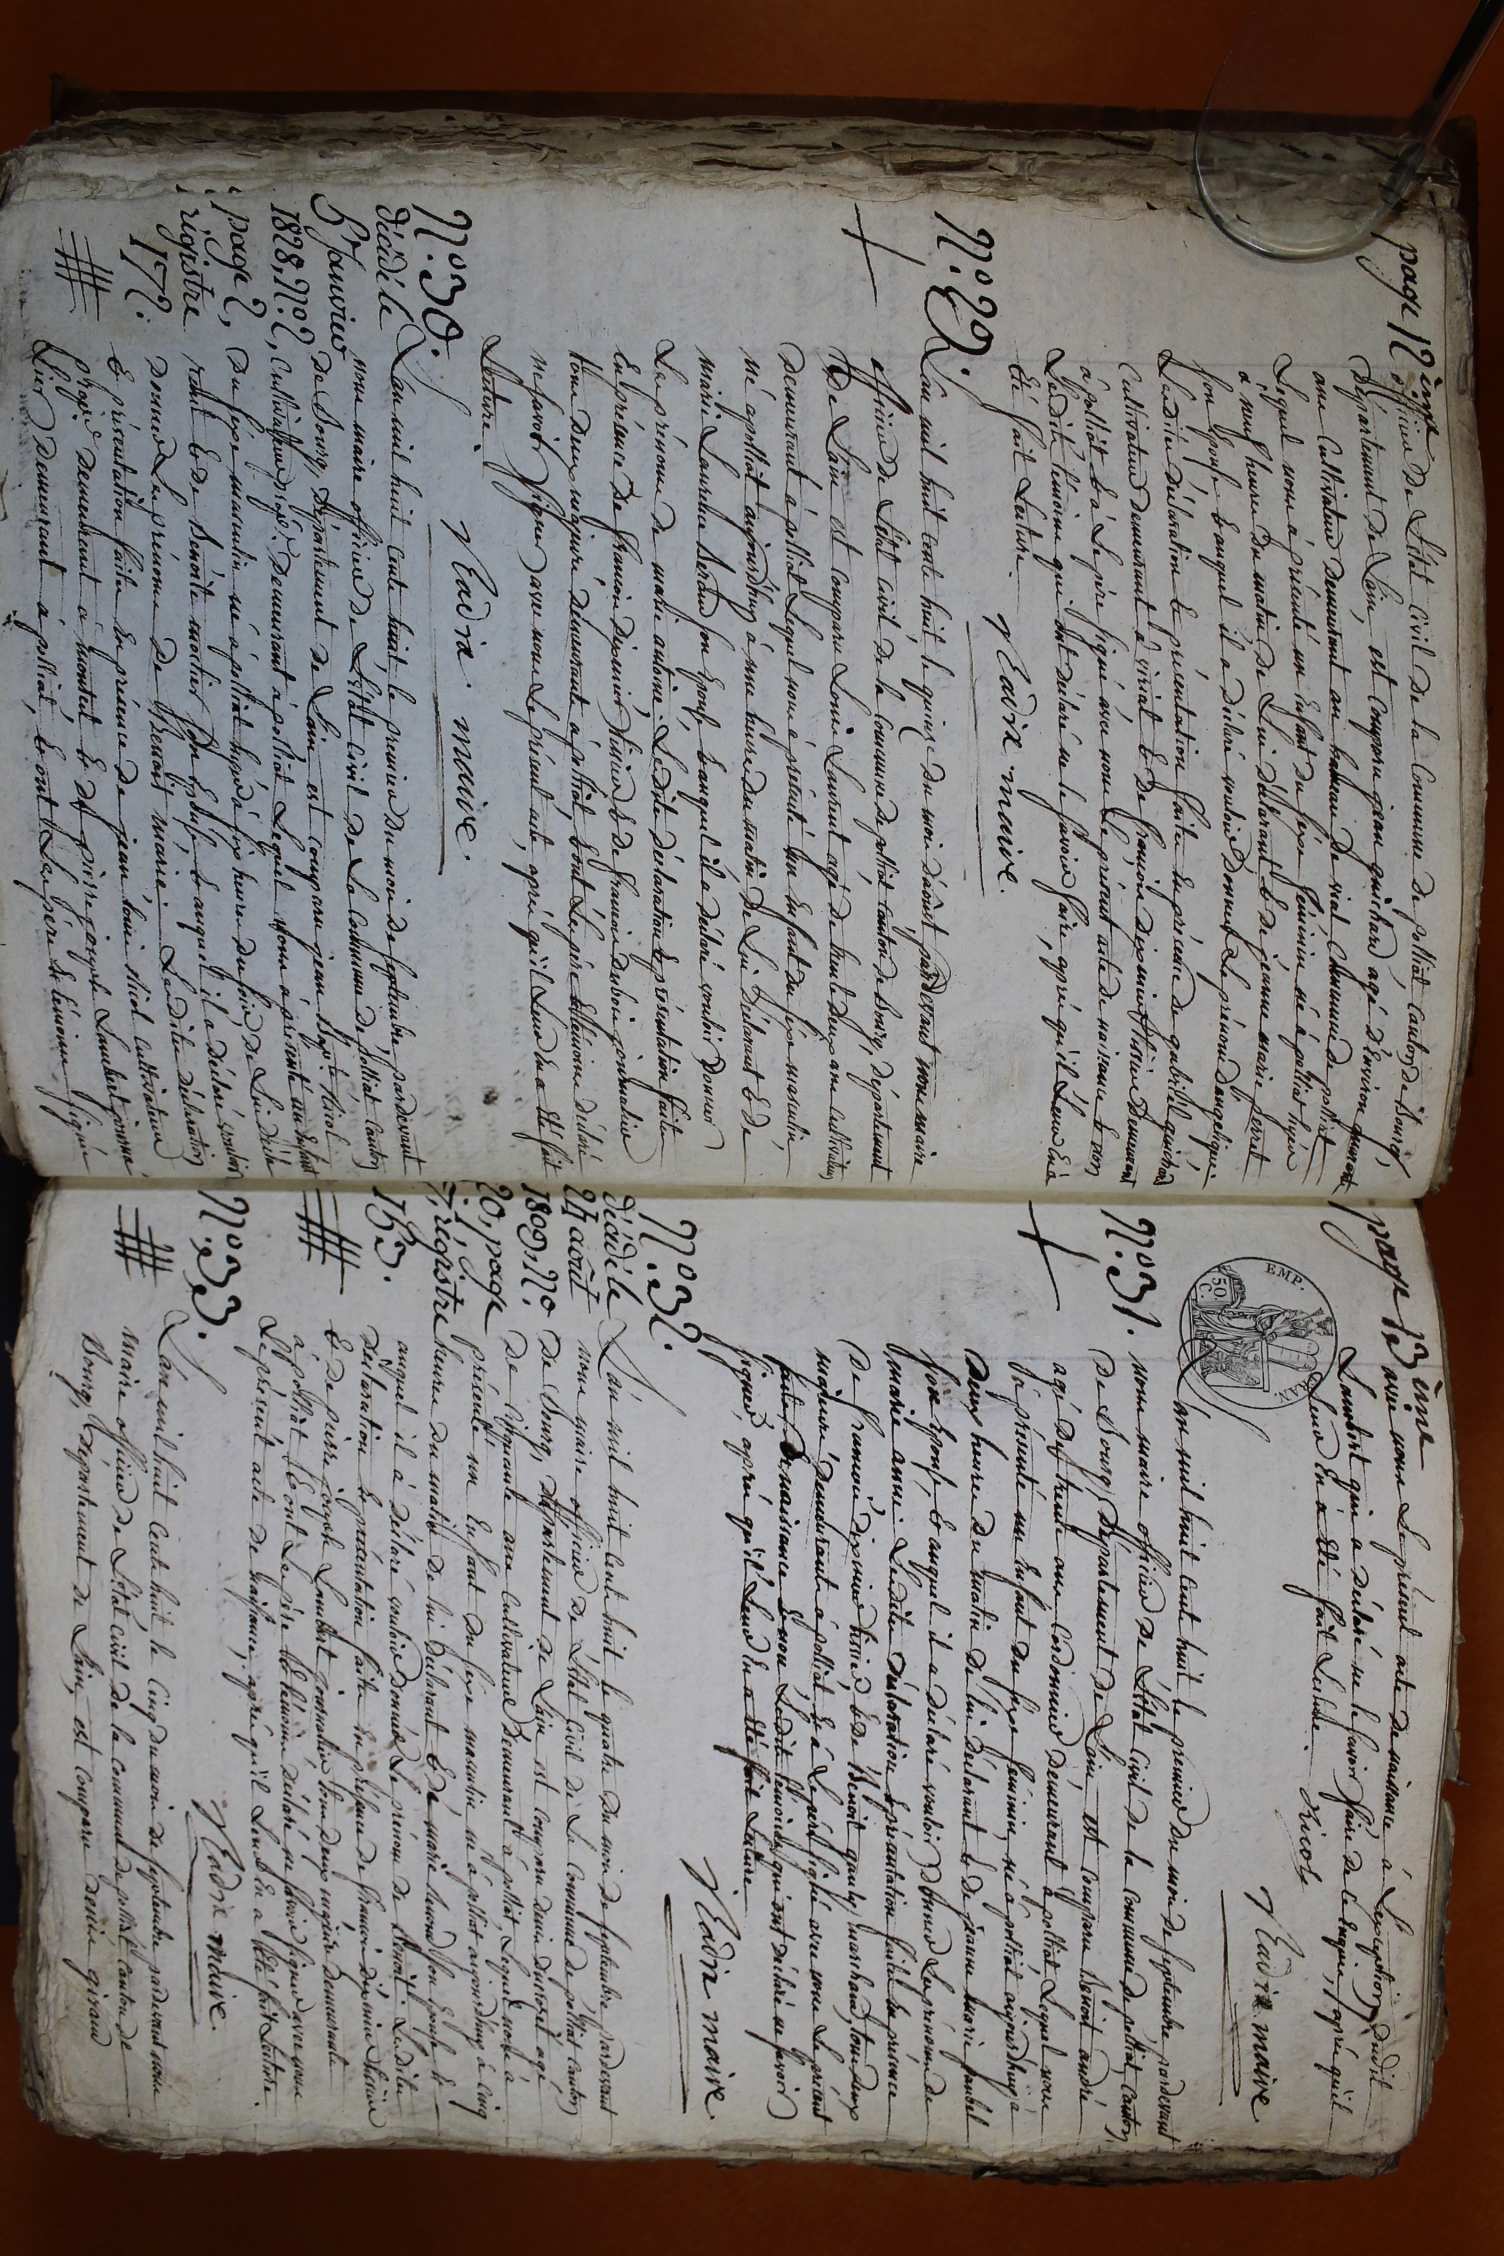 page 12 ème
officier de L'état civil de la Commune de polliat canton de Bourg,
Département de L'ain, est comparu jean guichard agé d'environ quarante
ans Cultivateur demeurant au hameau de vial Commune de polliat
Lequel nous a présenté un Enfant du sexe féminin né à polliat hyer
à neuf heures du matin de Lui déclarant & de jeanne marie perret
son Epouse & auquel il a déclaré vouloir donner Le prénom d'angélique.
Laditte déclaration & présentation faites En présence de gabriel guichard
Cultivateur demeurant à & de françois
à polliat & à Le père signé avec nous Le présent acte de naissance & non
Ledit témoins qui ont déclaré ne le savoir faire, après qu'il Leur En a
Eté fait Lecture.
Nadix maire.
N.º 29.
L'an mil huit cents huit, le quinze du mois d'août, pardevant nous maire
officier de L'état civil de la Commune de polliat canton de Bourg, Département
De L'ain est comparu Louis Laurent agé de trente deux ans cultivateur
demeurant à polliat Lequel nous a présenté un Enfant du sexe masculin,
né à polliat aujourd'huy à une heure du matin de Lui Déclarant & de
marie Laurence Beraud son Epouse & auquel il a déclaré vouloir Donner
Le prénom de marie antoine. Ledite déclaration & présentation faite
En présence de françois & de françois dubois journalier
tous deux majeurs demeurants à polliat, & ont Le père & témoins déclaré
ne savoir signer avec nous Le présent acte, après qu'il Leur En a Eté fait
Lecture.
Nadix. maire.
N.º 30.
décédé le
5 Janvier
1828, N.º 2,
page 2,
régistre
172.
L'an mil huit cents huit, le premier du mois de septembre, pardevant
nous maire officier de L'état civil de La Commune de Polliat Canton
de Bourg, Département de L'ain est comparu jean
Cultivateur demeurant à polliat Lequel nous a présenté un Enfant
du sexe masculin né à polliat hyer à six heures du soir de Lui déclarant
& de Benoite son Epouse & auquel il a déclaré vouloir
donner Le prénom de Benoit marie. Laditte déclaration
& présentation faites En présence de jean louis nicol cultivateur
demeurant à montcet & de pierre joseph Lambert journalier
demeurant à polliat, & ont Le père & témoins signé
page 13 ème
avec nous Le présent acte de naissance à L'exception dudit
Lambert qui a déclaré ne le savoir faire de ce enquis, après qu'il
Leur En a Eté fait Lecture. Nicol
Nadix maire
EMP.
50
C.
N.º 31.
L'an mil huit cent huit le premier du mois de septembre, pardevant
nous maire officier de L'état civil de la Commune de polliat, canton
de Bourg, Département de L'ain est comparu Benoit andré
agé de trente ans Cordonnier demeurant à polliat Lequel nous
à présenté un Enfant du sexe féminin, né à polliat aujourd'huy à
deux heures du matin de lui déclarant & de jeanne marie
son Epouse, & auquel il a déclaré vouloir Donner Le prénom de
marie anne. Ledite déclaration & présentation faites En présence
de françois & de Benoit marchand, tous deux
majeurs demeurants à polliat & à Le père signé avec nous Le présent
acte de naissance & non Ledits témoins qui ont déclaré ne savoir
signer, après qu'il Leur En a Eté fait Lecture
Nadix maire.
N.º 32.
décédé le
24 août
1809, N.º
20, page
régistre
153.
L'an mil huit cent huit le quatre du mois de septembre, pardevant
nous maire officier de L'état civil de La Commune de polliat canton
de Bourg, département de L'ain est comparu denis agé
De cinquante ans Cultivateur Demeurant à polliat, Lequel nous à
présenté un Enfant du sexe masculin né à polliat aujourd'huy à cinq
heures du matin de lui déclarant & de marie son Epouse &
auquel il à déclaré vouloir donner Le prénom de Benoit. Laditte
déclaration & présentation faites En présence de françois
& de pierre joseph Lambert journalier tous deux majeurs demeurants
à polliat & ont Le père & témoins déclaré ne savoir signer avec nous
Le présent acte de naissance, après qu'il Leur En a Eté fait Lecture.
Nadix maire.
N.º 33.
L'an mil huit cents huit le cinq du mois de septembre pardevant nous
maire officier de L'état civil de la commune de polliat canton de
Bourg, Département de L'ain, est comparu denis giraud